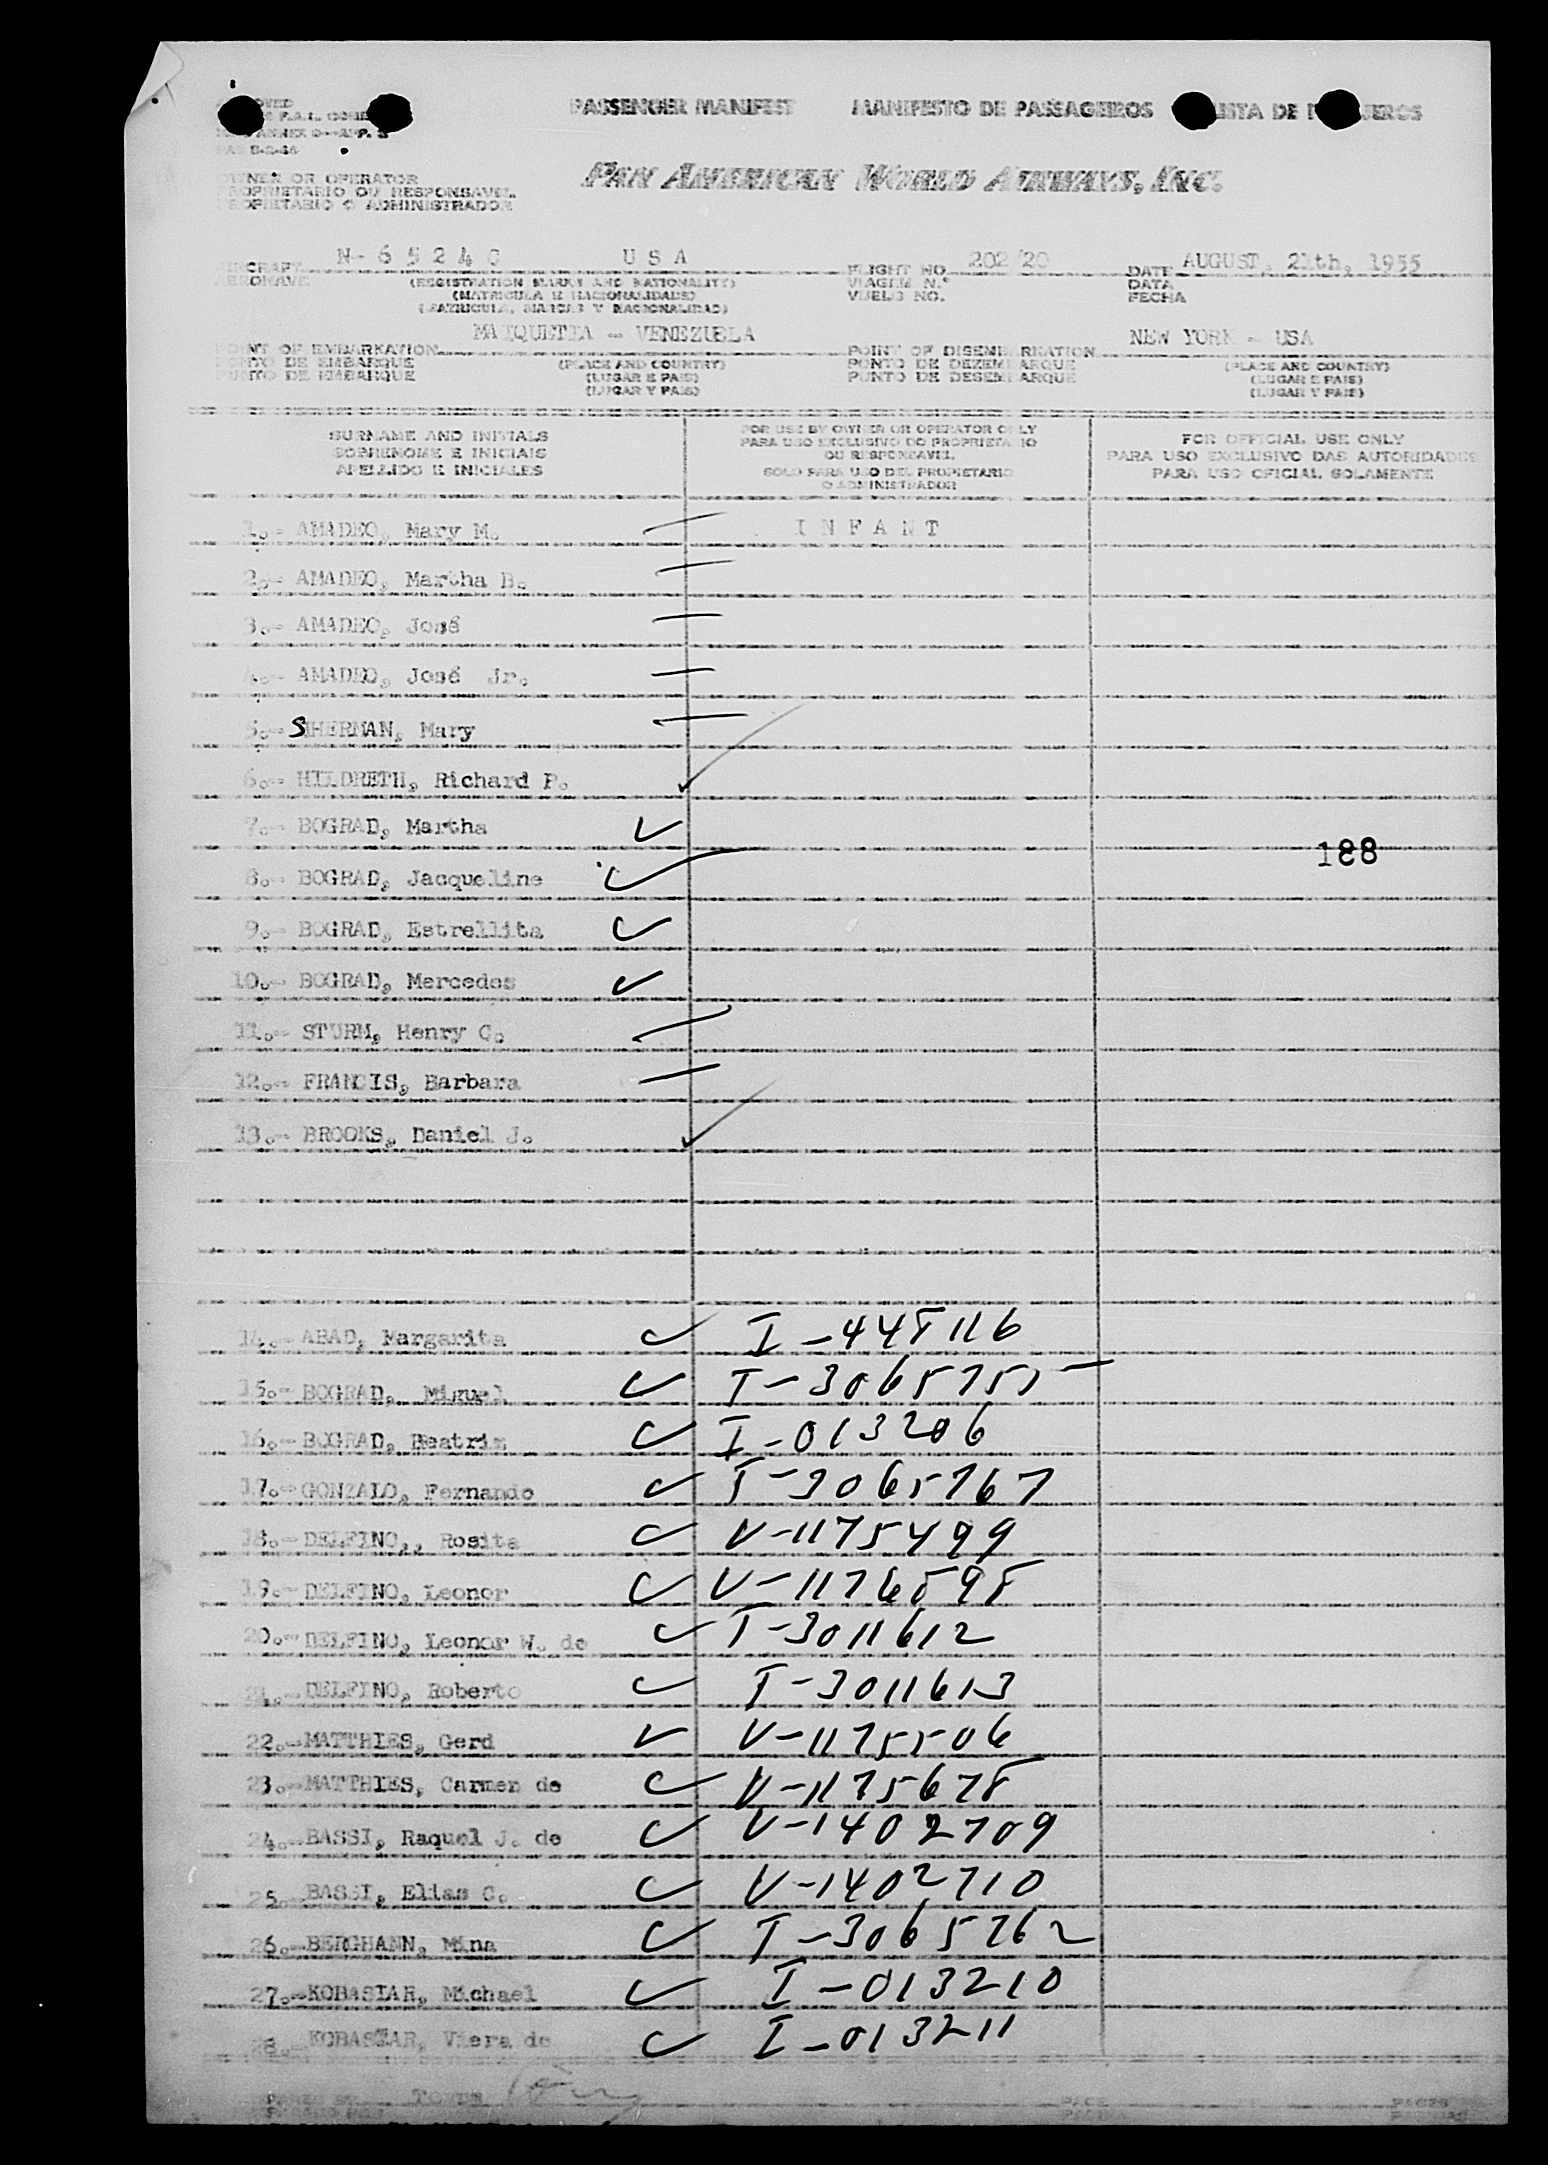 PASSENGER MANIFEST MANIFESTO DE PASSAGEIROS LISTA DE
PAN AMERICAN WORLD AIRWAYS, INC.
OWNER OR OPERATOR
PROPRIETARIO OU RESPONSAVEL
PROPIETARIO O ADMINISTRADOR
AIRCRAFT N-65240 USA FLIGHT NO. 202/20 DATE AUGUST, 21th, 1955
AERONAVE (REGISTRATION MARKS AND NATIONALITY) VIAGEM N.° DATA
(MATRICULA E NACIONALIDADE) VUELO NO. FECHA
(MATRICULA, MARCAS Y NACIONALIDAD)
POINT OF EMBARKATION MAIQUETIA - VENEZUELA POINT OF DISEMBARKATION NEW YORK - USA
PONTO DE EMBARQUE (PLACE AND COUNTRY) PONTO DE DEZEMBARQUE (PLACE AND COUNTRY)
PUNTO DE EMBARQUE (LUGAR E PAIS) PUNTO DE DESEMBARQUE (LUGAR E PAIS)
(LUGAR Y PAIS) (LUGAR Y PAIS)
SURNAME AND INITIALS
SOBRENOME E INICIAIS
APELLIDO E INICIALES
FOR USE BY OWNER OR OPERATOR ONLY
PARA USO EXCLUSIVO DO PROPRIETARIO
OU RESPONSAVEL
SOLO PARA USO DEL PROPIETARIO
O ADMINISTRADOR
FOR OFFICIAL USE ONLY
PARA USO EXCLUSIVO DAS AUTORIDADES
PARA USO OFICIAL SOLAMENTE
1.- AMADEO, Mary M. INFANT
2.- AMADEO, Martha B.
3.- AMADEO, José
4.- AMADEO, José Jr.
5.- SHERMAN, Mary
6.- HILDRETH, Richard P.
7.- BOGRAD, Martha
188
8.- BOGRAD, Jacqueline
9.- BOGRAD, Estrellita
10.- BOGRAD, Mercedes
11.- STURM, Henry C.
12.- FRANCIS, Barbara
13.- BROOKS, Daniel J.
14.- ABAD, Margarita I-445116
15.- BOGRAD, Miguel I-3065755
16.- BOGRAD, Beatriz I-013206
17.- GONZALO, Fernando I-3065767
18.- DELFINO,, Rosita V-1175499
19.- DELFINO, Leonor V-1176598
20.- DELFINO, Leonor W. de I-3011612
21.- DELFINO, Roberto I-3011613
22.- MATTHIES, Gerd V-1175506
23.- MATTHIES, Carmen de V-1175678
24.- BASSI, Raquel J. de V-1402709
25.- BASSI, Elias C. V-1402710
26.- BERGHANN, Mina I-3065762
27.- KOBASIAR, Michael I-013210
28.- KOBASIAR, Viera de I-013211